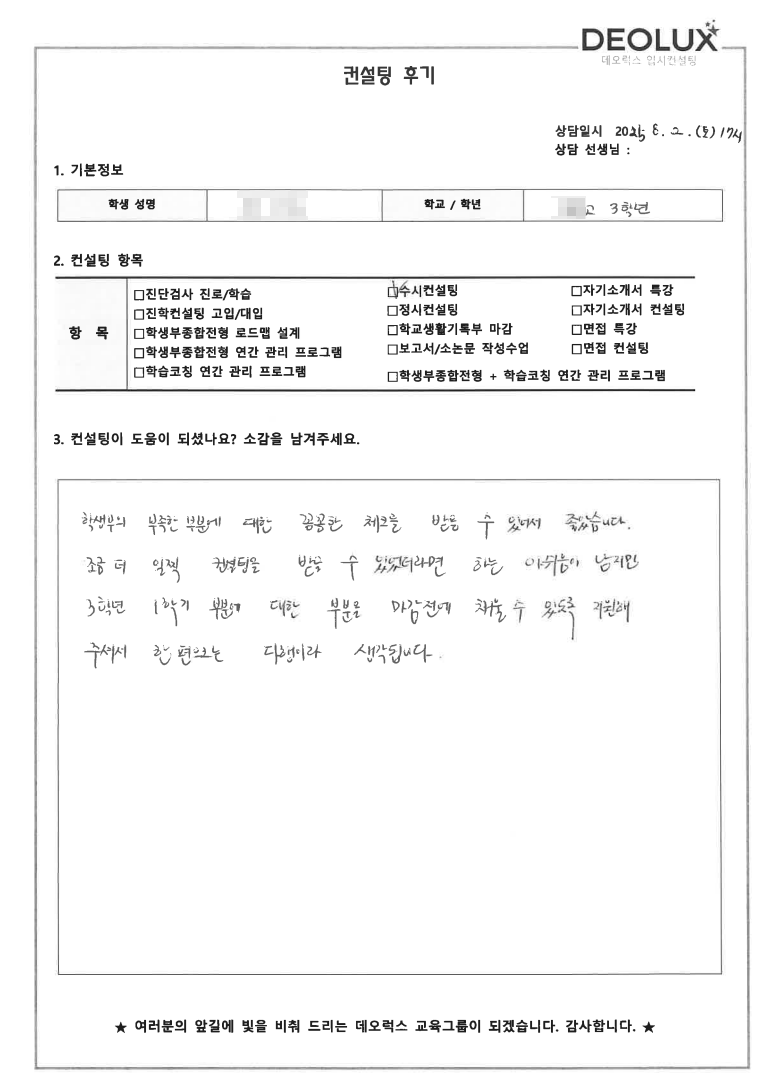 DEOLUX
데오럭스 입시컨설팅
컨설팅 후기
상담일시 2025 8. 2. (토) 17시
상담 선생님 :
1. 기본정보
학생 성명 학교 / 학년 고 3학년
2. 컨설팅 항목
항 목
□진단검사 진로/학습
□진학컨설팅 고입/대입
□학생부종합전형 로드맵 설계
□학생부종합전형 연간 관리 프로그램
□학습코칭 연간 관리 프로그램
☑수시컨설팅
□정시컨설팅
□학교생활기록부 마감
□보고서/소논문 작성수업
□학생부종합전형 + 학습코칭 연간 관리 프로그램
□자기소개서 특강
□자기소개서 컨설팅
□면접 특강
□면접 컨설팅
3. 컨설팅이 도움이 되셨나요? 소감을 남겨주세요.
학생부의 부족한 부분에 대한 꼼꼼한 체크를 받을 수 있어서 좋았습니다.
조금 더 일찍 컨설팅을 받을 수 있었더라면 하는 아쉬움이 남지만
3학년 1학기 부분에 대한 부분을 마감전에 채울 수 있도록 지원해
주셔서 한편으로는 다행이라 생각됩니다.
★ 여러분의 앞길에 빛을 비춰 드리는 데오럭스 교육그룹이 되겠습니다. 감사합니다. ★